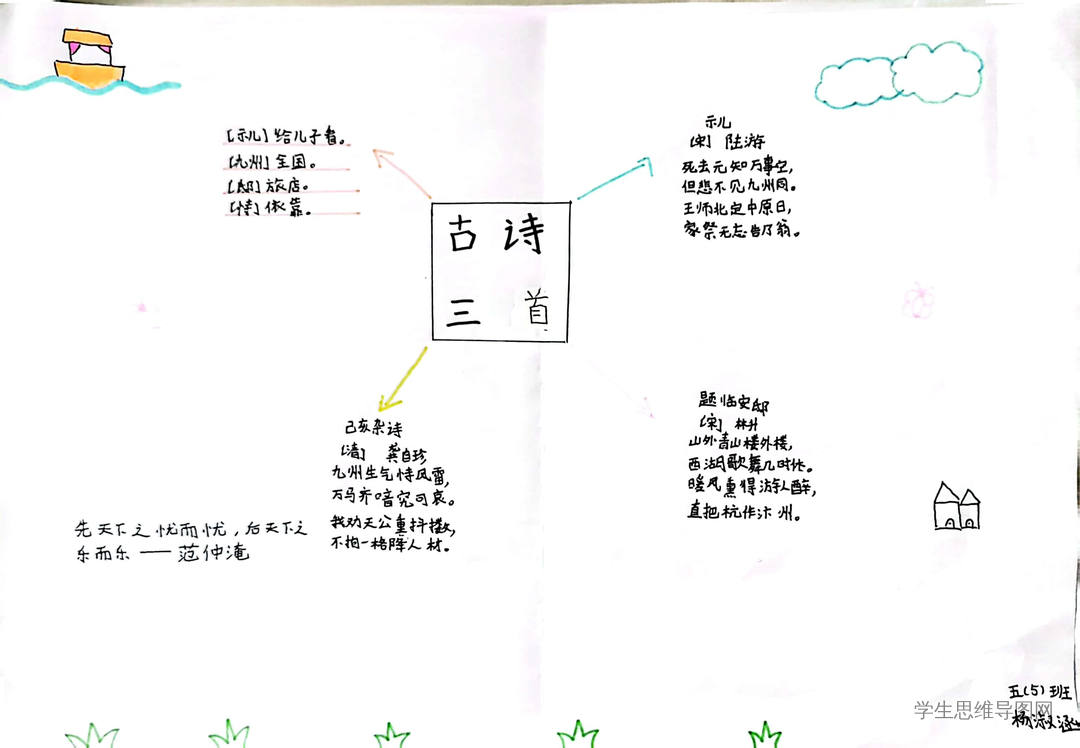 古诗
三首
【示儿】给儿子看。
【九州】全国。
【邸】旅店。
【恃】依靠。
示儿
【宋】 陆游
死去元知万事空,
但悲不见九州同。
王师北定中原日,
家祭无忘告乃翁。
己亥杂诗
【清】 龚自珍
九州生气恃风雷,
万马齐喑究可哀。
我劝天公重抖擞,
不拘一格降人材。
题临安邸
【宋】 林升
山外青山楼外楼,
西湖歌舞几时休。
暖风熏得游人醉,
直把杭作汴州。
先天下之忧而忧,后天下之
乐而乐——范仲淹
五(5)班
杨淑
学生思维导图网